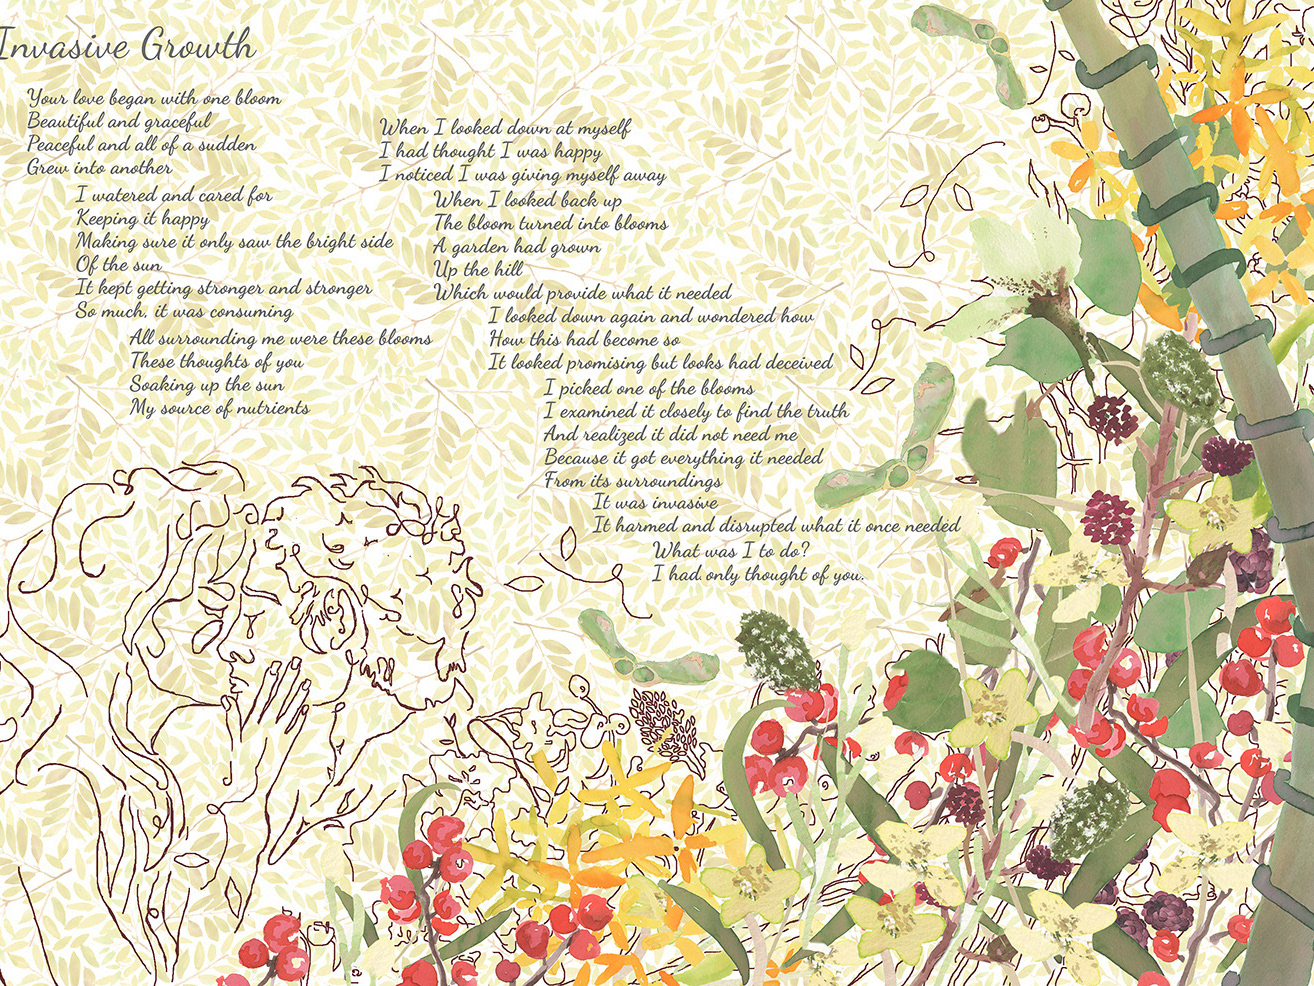 Invasive Growth
Your love began with one bloom
Beautiful and graceful
Peaceful and all of a sudden
Grew into another
I watered and cared for
Keeping it happy
Making sure it only saw the bright side
Of the sun
It kept getting stronger and stronger
So much, it was consuming
All surrounding me were these blooms
These thoughts of you
Soaking up the sun
My source of nutrients
When I looked down at myself
I had thought I was happy
I noticed I was giving myself away
When I looked back up
The bloom turned into blooms
A garden had grown
Up the hill
Which would provide what it needed
I looked down again and wondered how
How this had become so
It looked promising but looks had deceived
I picked one of the blooms
I examined it closely to find the truth
And realized it did not need me
Because it got everything it needed
From its surroundings
It was invasive
It harmed and disrupted what it once needed
What was I to do?
I had only thought of you.